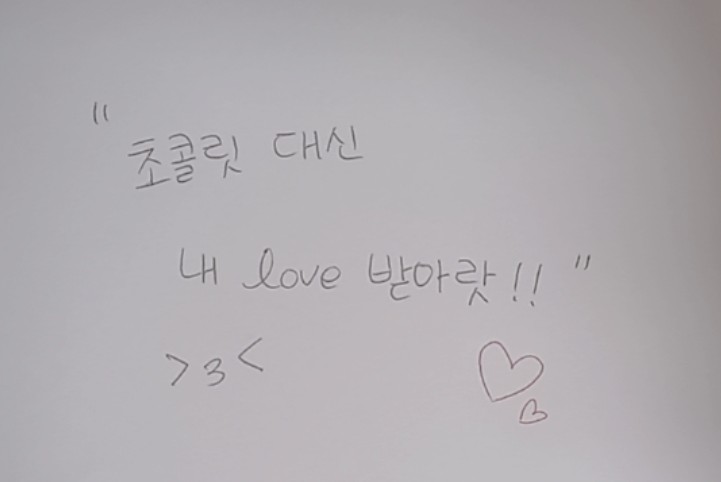 "초콜릿 대신
내 love 받아랏!!"
>3< ♡♡